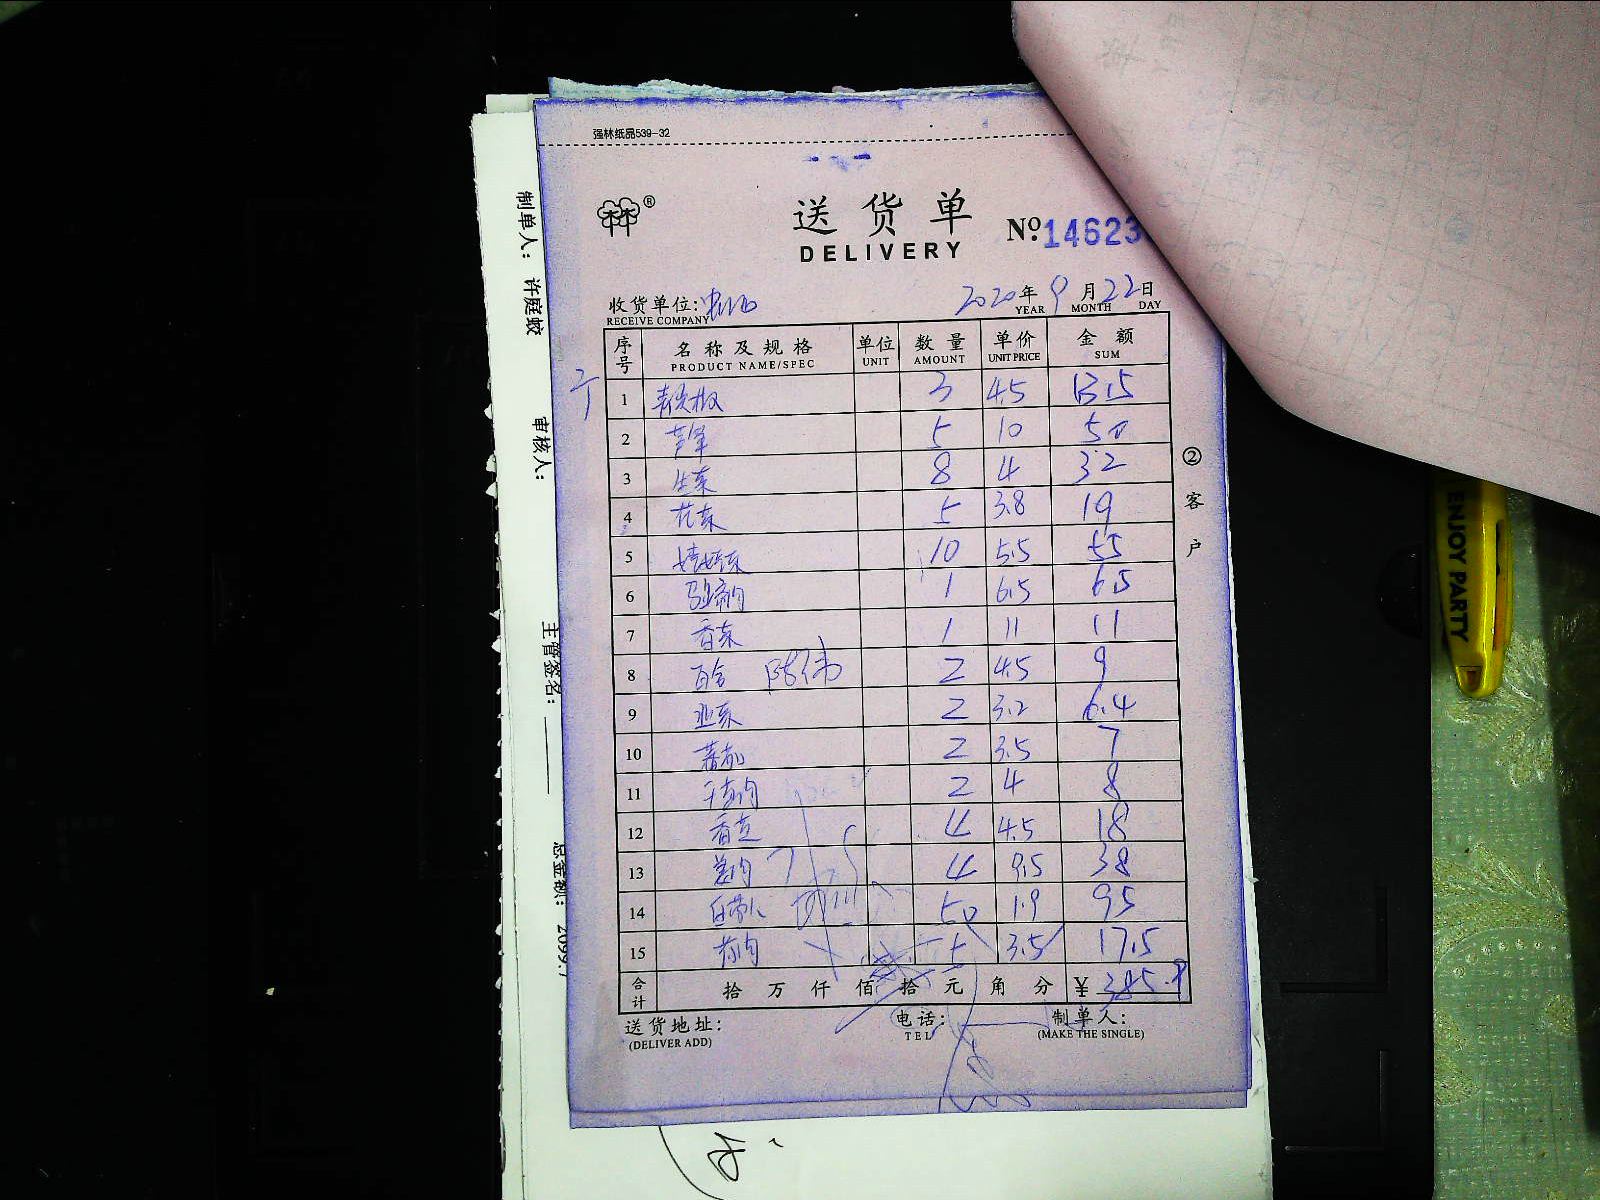 强林纸品539-32
送货单
DELIVERY
№:14623
收货单位:
RECEIVE COMPANY
2020年9月22日
YEAR MONTH DAY
序号 名称及规格 单位 数量 单价 金额
PRODUCT NAME/SPEC UNIT AMOUNT UNIT PRICE SUM
1 3 4.5 13.5
2 芦笋 5 10 50
3 生菜 8 4 32
4 花菜 5 3.8 19
5 娃娃菜 10 5.5 55
6 1 6.5 6.5
7 香菜 1 11 11
8 百合 2 4.5 9
9 韭菜 2 3.2 6.4
10 蕃茄 2 3.5 7
11 2 4 8
12 香芝 4 4.5 18
13 4 9.5 38
14 50 1.9 95
15 3.5 17.5
合计 拾 万 仟 佰 拾 元 角 分 ¥ 385.9
送货地址: 电话: 制单人:
(DELIVER ADD) TEL (MAKE THE SINGLE)
②客户
制单人: 许庭蛟
审核人:
主管签名:
总金额: 2099.7
ENJOY PARTY